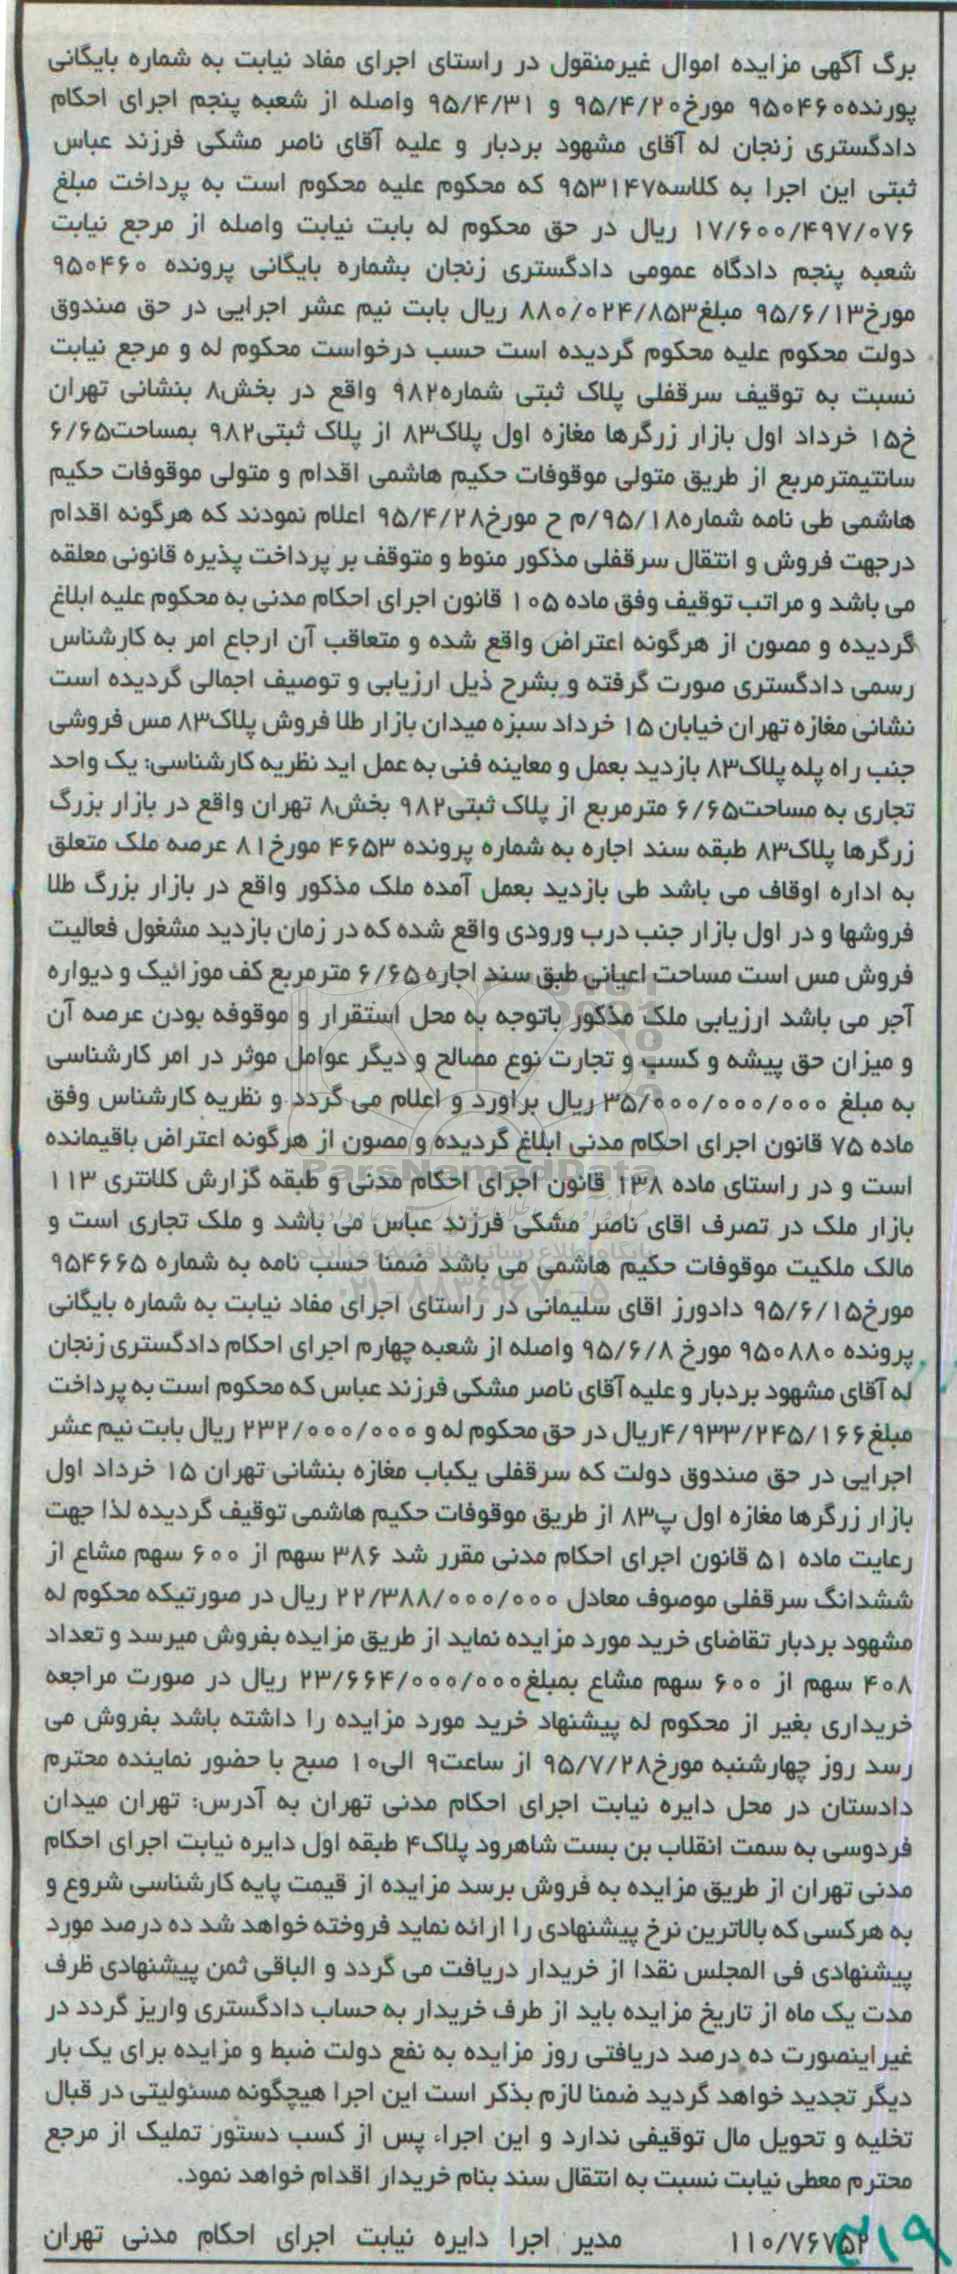 برگ آگهی مزایده اموال غیرمنقول در راستای اجرای مفاد نیابت به شماره بایگانی
پورنده۹۵۰۴۶۰ مورخ۹۵/۴/۲۰ و ۹۵/۴/۳۱ واصله از شعبه پنجم اجرای احکام
دادگستری زنجان له آقای مشهود بردبار و علیه آقای ناصر مشکی فرزند عباس
ثبتی این اجرا به کلاسه۹۵۳۱۴۷ که محکوم علیه محکوم است به پرداخت مبلغ
۱۷/۶۰۰/۴۹۷/۰۷۶ ریال در حق محکوم له بابت نیابت واصله از مرجع نیابت
شعبه پنجم دادگاه عمومی دادگستری زنجان بشماره بایگانی پرونده ۹۵۰۴۶۰
مورخ۹۵/۶/۱۳ مبلغ۸۸۰/۰۲۴/۸۵۳ ریال بابت نیم عشر اجرایی در حق صندوق
دولت محکوم علیه محکوم گردیده است حسب درخواست محکوم له و مرجع نیابت
نسبت به توقیف سرقفلی پلاک ثبتی شماره۹۸۲ واقع در بخش۸ بنشانی تهران
خ۱۵ خرداد اول بازار زرگرها مغازه اول پلاک۸۳ از پلاک ثبتی۹۸۲ بمساحت۶/۶۵
سانتیمترمربع از طریق متولی موقوفات حکیم هاشمی اقدام و متولی موقوفات حکیم
هاشمی طی نامه شماره۹۵/۱۸/م ح مورخ۹۵/۴/۲۸ اعلام نمودند که هرگونه اقدام
درجهت فروش و انتقال سرقفلی مذکور منوط و متوقف بر پرداخت پذیره قانونی معلقه
می باشد و مراتب توقیف وفق ماده ۱۰۵ قانون اجرای احکام مدنی به محکوم علیه ابلاغ
گردیده و مصون از هرگونه اعتراض واقع شده و متعاقب آن ارجاع امر به کارشناس
رسمی دادگستری صورت گرفته و بشرح ذیل ارزیابی و توصیف اجمالی گردیده است
نشانی مغازه تهران خیابان ۱۵ خرداد سبزه میدان بازار طلا فروش پلاک۸۳ مس فروشی
جنب راه پله پلاک۸۳ بازدید بعمل و معاینه فنی به عمل اید نظریه کارشناسی: یک واحد
تجاری به مساحت۶/۶۵ مترمربع از پلاک ثبتی۹۸۲ بخش۸ تهران واقع در بازار بزرگ
زرگرها پلاک۸۳ طبقه سند اجاره به شماره پرونده ۴۶۵۳ مورخ۸۱ عرصه ملک متعلق
به اداره اوقاف می باشد طی بازدید بعمل آمده ملک مذکور واقع در بازار بزرگ طلا
فروشها و در اول بازار جنب درب ورودی واقع شده که در زمان بازدید مشغول فعالیت
فروش مس است مساحت اعیانی طبق سند اجاره ۶/۶۵ مترمربع کف موزائیک و دیواره
آجر می باشد ارزیابی ملک مذکور باتوجه به محل استقرار و موقوفه بودن عرصه آن
و میزان حق پیشه و کسب و تجارت نوع مصالح و دیگر عوامل موثر در امر کارشناسی
به مبلغ ۳۵/۰۰۰/۰۰۰/۰۰۰ ریال براورد و اعلام می گردد و نظریه کارشناس وفق
ماده ۷۵ قانون اجرای احکام مدنی ابلاغ گردیده و مصون از هرگونه اعتراض باقیمانده
ParsNamadData
است و در راستای ماده ۱۳۸ قانون اجرای احکام مدنی و طبقه گزارش کلانتری ۱۱۳
بازار ملک در تصرف اقای ناصر مشکی فرزند عباس می باشد و ملک تجاری است و
پایگاه اطلاع رسانی مناقصه و مزایده
مالک ملکیت موقوفات حکیم هاشمی می باشد ضمنا حسب نامه به شماره ۹۵۴۶۶۵
۰۲۱-۸۸۳۴۹۶۷۰-۵
مورخ۹۵/۶/۱۵ دادورز اقای سلیمانی در راستای اجرای مفاد نیابت به شماره بایگانی
پرونده ۹۵۰۸۸۰ مورخ ۹۵/۶/۸ واصله از شعبه چهارم اجرای احکام دادگستری زنجان
له آقای مشهود بردبار و علیه آقای ناصر مشکی فرزند عباس که محکوم است به پرداخت
مبلغ۴/۹۳۳/۲۴۵/۱۶۶ریال در حق محکوم له و ۲۳۲/۰۰۰/۰۰۰ ریال بابت نیم عشر
اجرایی در حق صندوق دولت که سرقفلی یکباب مغازه بنشانی تهران ۱۵ خرداد اول
بازار زرگرها مغازه اول پ۸۳ از طریق موقوفات حکیم هاشمی توقیف گردیده لذا جهت
رعایت ماده ۵۱ قانون اجرای احکام مدنی مقرر شد ۳۸۶ سهم از ۶۰۰ سهم مشاع از
ششدانگ سرقفلی موصوف معادل ۲۲/۳۸۸/۰۰۰/۰۰۰ ریال در صورتیکه محکوم له
مشهود بردبار تقاضای خرید مورد مزایده نماید از طریق مزایده بفروش میرسد و تعداد
۴۰۸ سهم از ۶۰۰ سهم مشاع بمبلغ۲۳/۶۶۴/۰۰۰/۰۰۰ ریال در صورت مراجعه
خریداری بغیر از محکوم له پیشنهاد خرید مورد مزایده را داشته باشد بفروش می
رسد روز چهارشنبه مورخ۹۵/۷/۲۸ از ساعت۹ الی۱۰ صبح با حضور نماینده محترم
دادستان در محل دایره نیابت اجرای احکام مدنی تهران به آدرس: تهران میدان
فردوسی به سمت انقلاب بن بست شاهرود پلاک۴ طبقه اول دایره نیابت اجرای احکام
مدنی تهران از طریق مزایده به فروش برسد مزایده از قیمت پایه کارشناسی شروع و
به هرکسی که بالاترین نرخ پیشنهادی را ارائه نماید فروخته خواهد شد ده درصد مورد
پیشنهادی فی المجلس نقدا از خریدار دریافت می گردد و الباقی ثمن پیشنهادی ظرف
مدت یک ماه از تاریخ مزایده باید از طرف خریدار به حساب دادگستری واریز گردد در
غیراینصورت ده درصد دریافتی روز مزایده به نفع دولت ضبط و مزایده برای یک بار
دیگر تجدید خواهد گردید ضمنا لازم بذکر است این اجرا هیچگونه مسئولیتی در قبال
تخلیه و تحویل مال توقیفی ندارد و این اجراء پس از کسب دستور تملیک از مرجع
محترم معطی نیابت نسبت به انتقال سند بنام خریدار اقدام خواهد نمود.
۱۱۰/۷۶۷۵۲ مدیر اجرا دایره نیابت اجرای احکام مدنی تهران